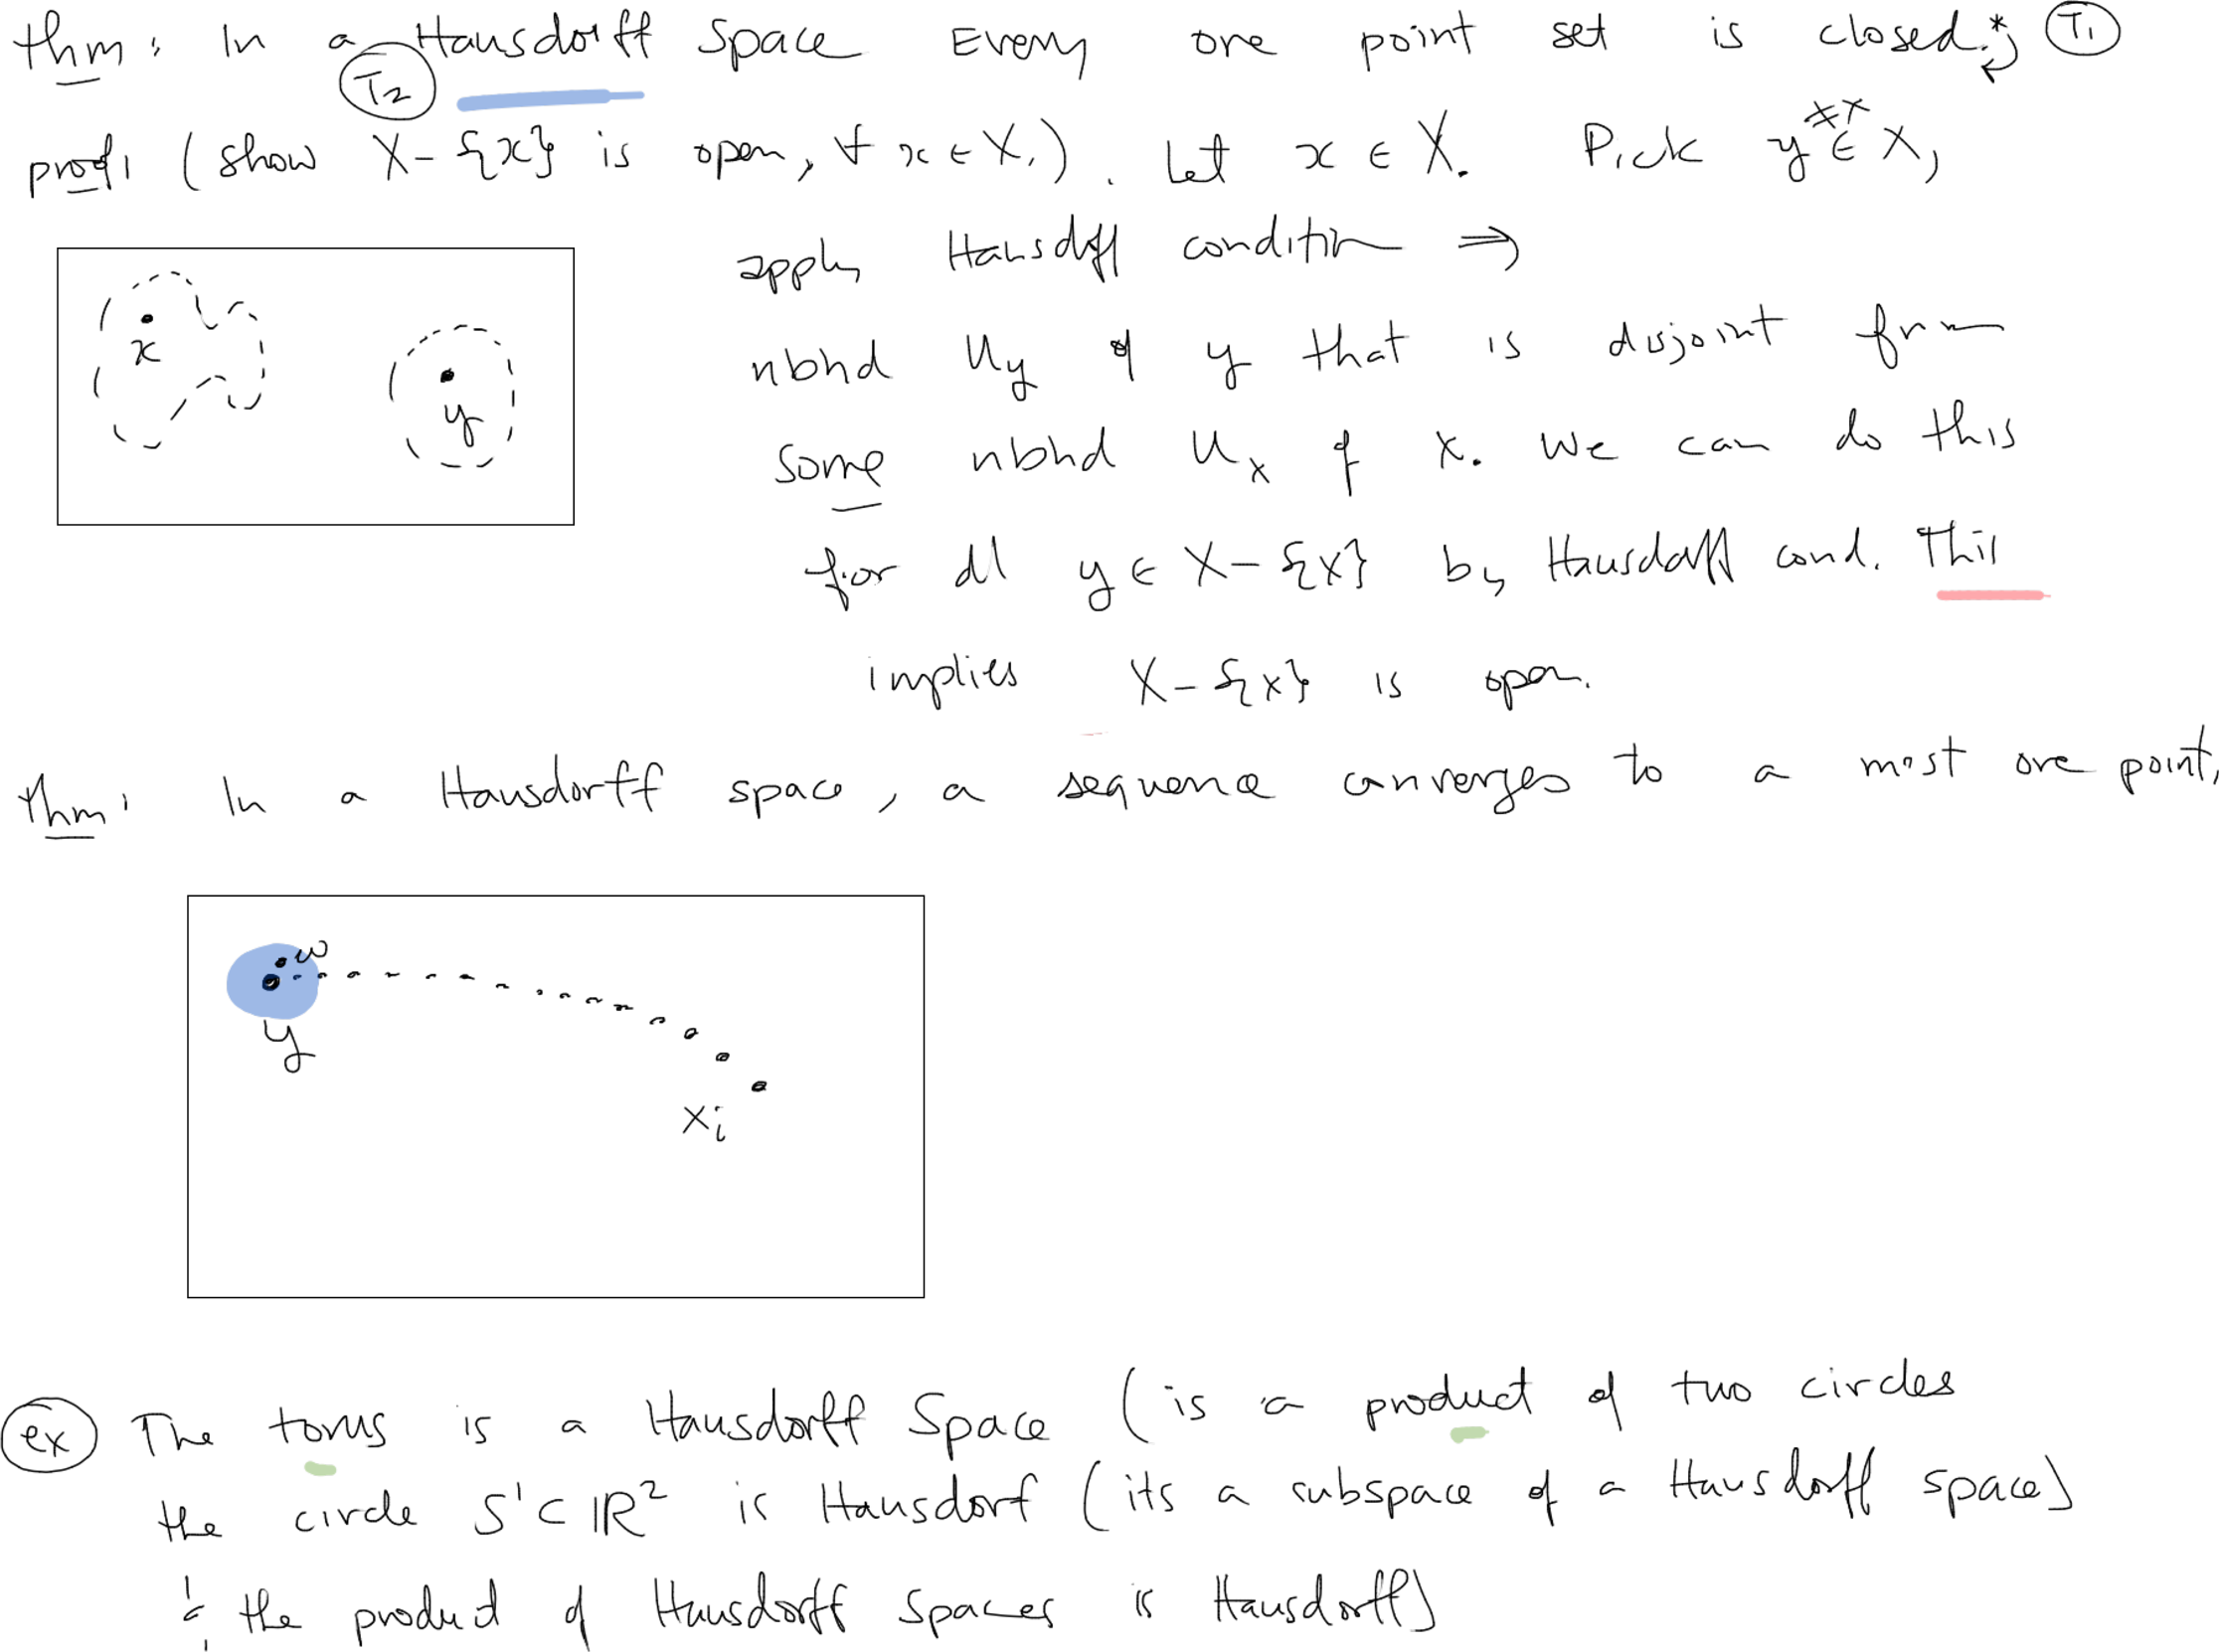 thm: In a Hausdorff Space Every one point set is closed.* T1
T2
proof: (show X - {x} is open, ∀ x ∈ X.). Let x ∈ X. Pick y ∈ X,
≠x
apply Hausdorff condition ⇒
x
nbhd Uy of y that is disjoint from
y
some nbhd Ux of x. We can do this
for all y ∈ X - {x} by Hausdorff cond. This
implies X - {x} is open.
thm: In a Hausdorff space, a sequence converges to a most one point.
w
y
xi
ex The torus is a Hausdorff Space (is a product of two circles
the circle S¹ ⊂ ℝ² is Hausdorf (its a subspace of a Hausdorff space)
& the product of Hausdorff spaces is Hausdorff)